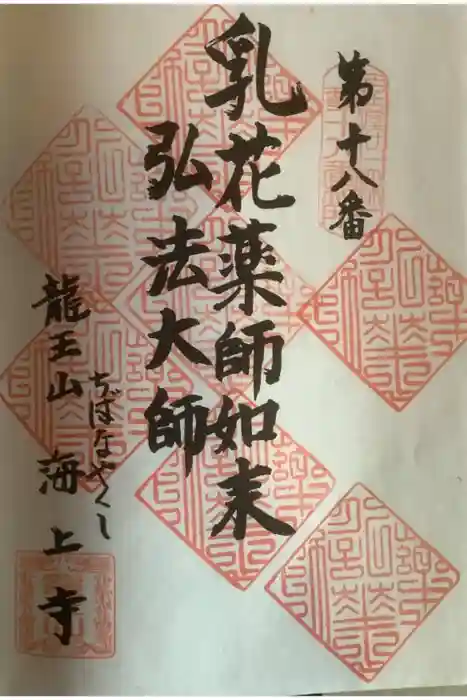 第十八番
乳花薬師如末
弘法大師
ちばなやくし
龍王山 海上寺